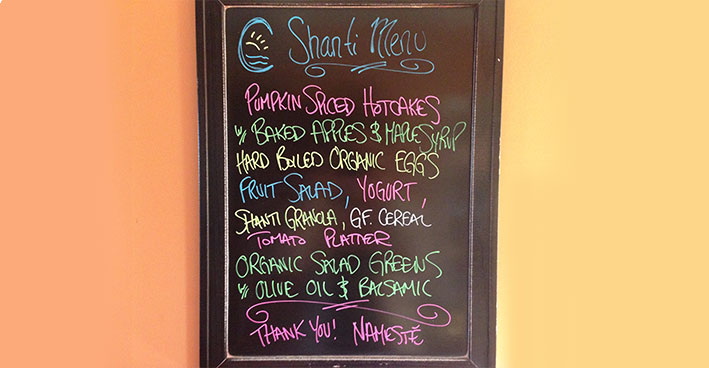 Shanti Menu
PUMPKIN SPICED HOTCAKES
w/ BAKED APPLES & MAPLE SYRUP
HARD BOILED ORGANIC EGGS
FRUIT SALAD, YOGURT,
SHANTI GRANOLA, GF. CEREAL
TOMATO PLATTER
ORGANIC SALAD GREENS
w/ OLIVE OIL & BALSAMIC
THANK YOU! NAMESTĒ